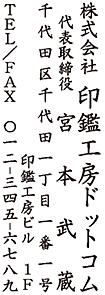 株式会社 印鑑工房ドットコム
代表取締役 宮本武蔵
千代田区千代田一丁目一番一号
印鑑工房ビル 1F
TEL／FAX 〇一二－三四五－六七八九